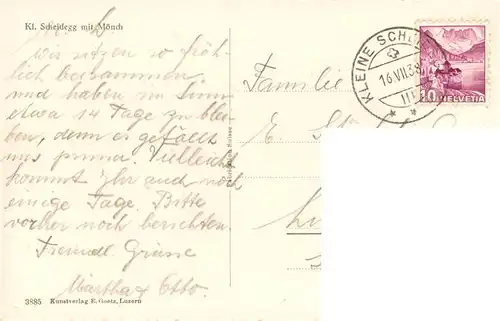 Kl. Scheidegg mit Mönch
wir sitzen so fröh-
lich beisammen
und haben im Sinn
etwa 14 Tage zu blei-
ben, denn es gefällt
uns prima. Vielleicht
kommt Ihr auch noch
einige Tage. Bitte
vorher noch berichten.
Freundl. Grüsse
Martha & Otto.
3885 Kunstverlag E. Goetz, Luzern
Fabrication Suisse
Familie
E.
KLEINE SCH
16.VII.38
III
10 HELVETIA